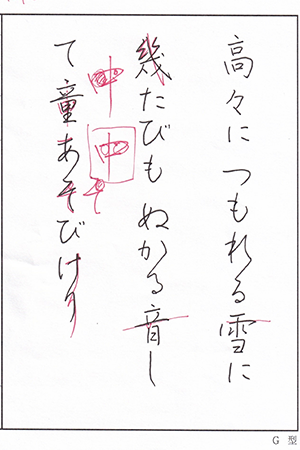 高々に つもれる雪に
幾たびも ぬかる音し
て童あそびけり
中
中
そ
G 型